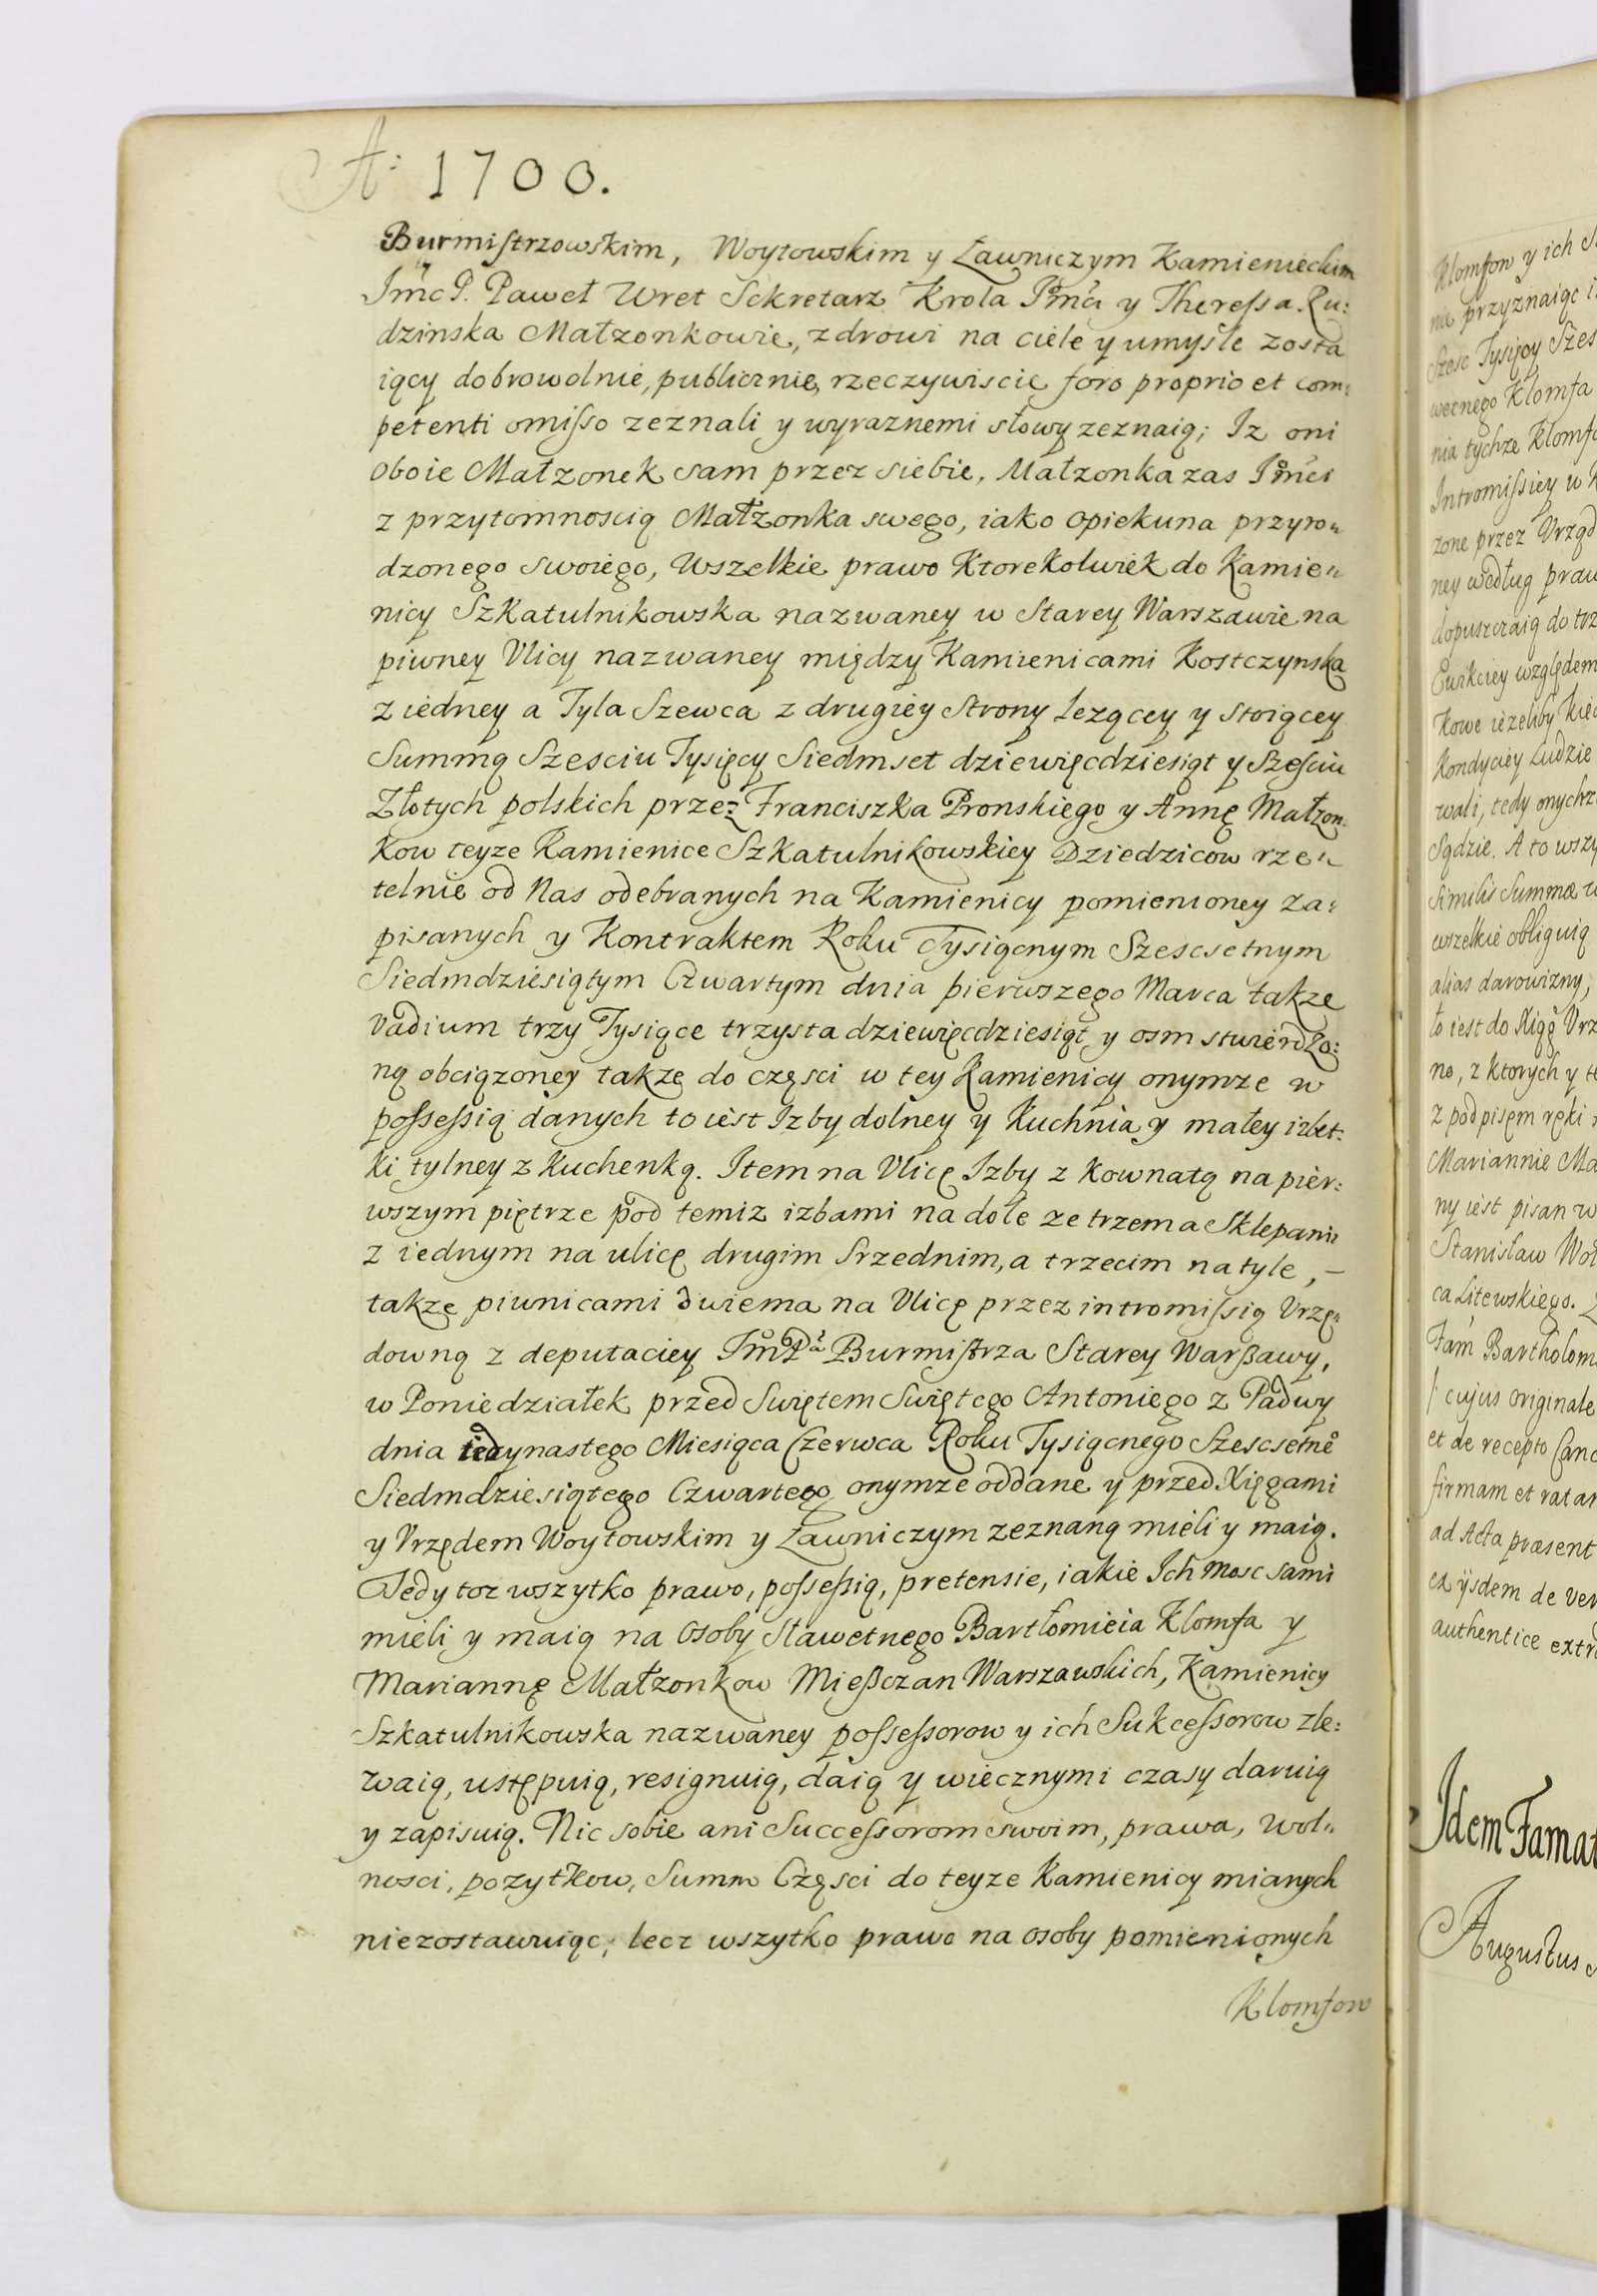 A: 1700.
Burmistrzowskim, Woytowskim y Ławniczym Kamienieckim
Jmć P. Paweł Wret Sekretarz Krola Jºmći y Theressa Ru:
dzinska Małzonkowie, zdrowi na ciele y umyśle zosta
iący dobrowolnie, publicznie, rzeczywiscie foro proprio et com:
petenti omisso zeznali y wyraznemi słowy zeznaią; Iz oni
oboie Małzonek sam przez siebie, Małzonka zas Jºmći
z przytomnoscią Małżonka swego, iako Opiekuna przyro„
dzonego swoiego, Wszelkie prawo Ktorekolwiek do Kamie„
nicy Szkatulnikowska nazwaney w Starey Warszawie na
piwney Vlicy nazwaney między Kamienicami Kostczynską
z iedney a Tyla Szewca z drugiey Strony lezącey y stoiącey
Summą Szesciu Tysięcy Siedmset dziewięcdziesiąt y Szesciu
Złotych polskich przez Franciszka Pronskiego y Annę Małzon:
kow teyze Kamienice Szkatulnikowskiey Dziedzicow rze„
telnie od Nas odebranych na Kamienicy pomienioney za:
pisanych y Kontraktem Roku Tysiącnym Szescsetnym
Siedmdziesiątym Czwartym dnia pierwszego Marca takze
Vadium trzy Tysiące trzysta dziewięcdziesiąt y osm stwierdzo:
ną obciązoney takze do częsci w tey Kamienicy onymze w
possessią danych to iest Izby dolney y Kuchnia y małey izbet:
ki tylney z kuchenką. Item na Vlicę Izby z kownatą na pier:
wszym piętrze pod temiz izbami na dole ze trzema Sklepami
z iednym na ulicę drugim Srzednim, a trzecim na tyle, –
takze piwnicami dwiema na Vlicę przez intromissią Vrzę„
downą z deputaciey JºmPª Burmistrza Starey Warszawy,
w Poniedziałek przed Swiętem Swiętego Antoniego z Padwy
dnia iedynastego Miesiąca Czerwca Roku Tysiącnego Szescsetnº
Siedmdziesiątego Czwartego onymze oddane y przed Xięgami
y Vrzędem Woytowskim y Ławniczym zeznaną mieli y maią.
Tedy toz wszytko prawo, possessią, pretensie, iakie Ich Mosc sami
mieli y maią na Osoby Sławetnego Bartłomieia Klomfa y
Mariannę Małzonkow Mieszczan Warszawskich, Kamienicy
Szkatulnikowska nazwaney possessorow y ich Sukcessorow zle:
waią, ustępuią, resignuią, daią y wiecznymi czasy daruią
y zapisuią. Nic sobie ani Successorom swoim, prawa, wol„
nosci, pozytkow, Summ Częsci do teyze Kamienicy mianych
niezostawuiąc; lecz wszytko prawo na osoby pomienionych
Klomfow
Klomfow y ich
nie przyznaiąc
Szesc Tysięcy Szes
wetnego Klomfa
nia tychze Klomfo
Intromissiey w
zone przez Vrząd
ney według praw
dopuszczaią do trz
Ewikciey względem
kowe iezeliby kied
Kondyciey Ludzie
wali, tedy onychz
Sądzie. A to wszy
Similis Summæ
wszelkie obliguią
alias darowizny,
to iest do Xiąg Vrz
no, z ktorych y t
z podpisem ręki
Mariannie Ma
ny iest pisan w
Stanisław Wo
ca Litewskiego.
Fam Bartholom
cujus originale
et de recepto Canc
firmam et ratam
ad Acta præsent
ex ijsdem de ver
authentice extr
Idem Famat
Augustus